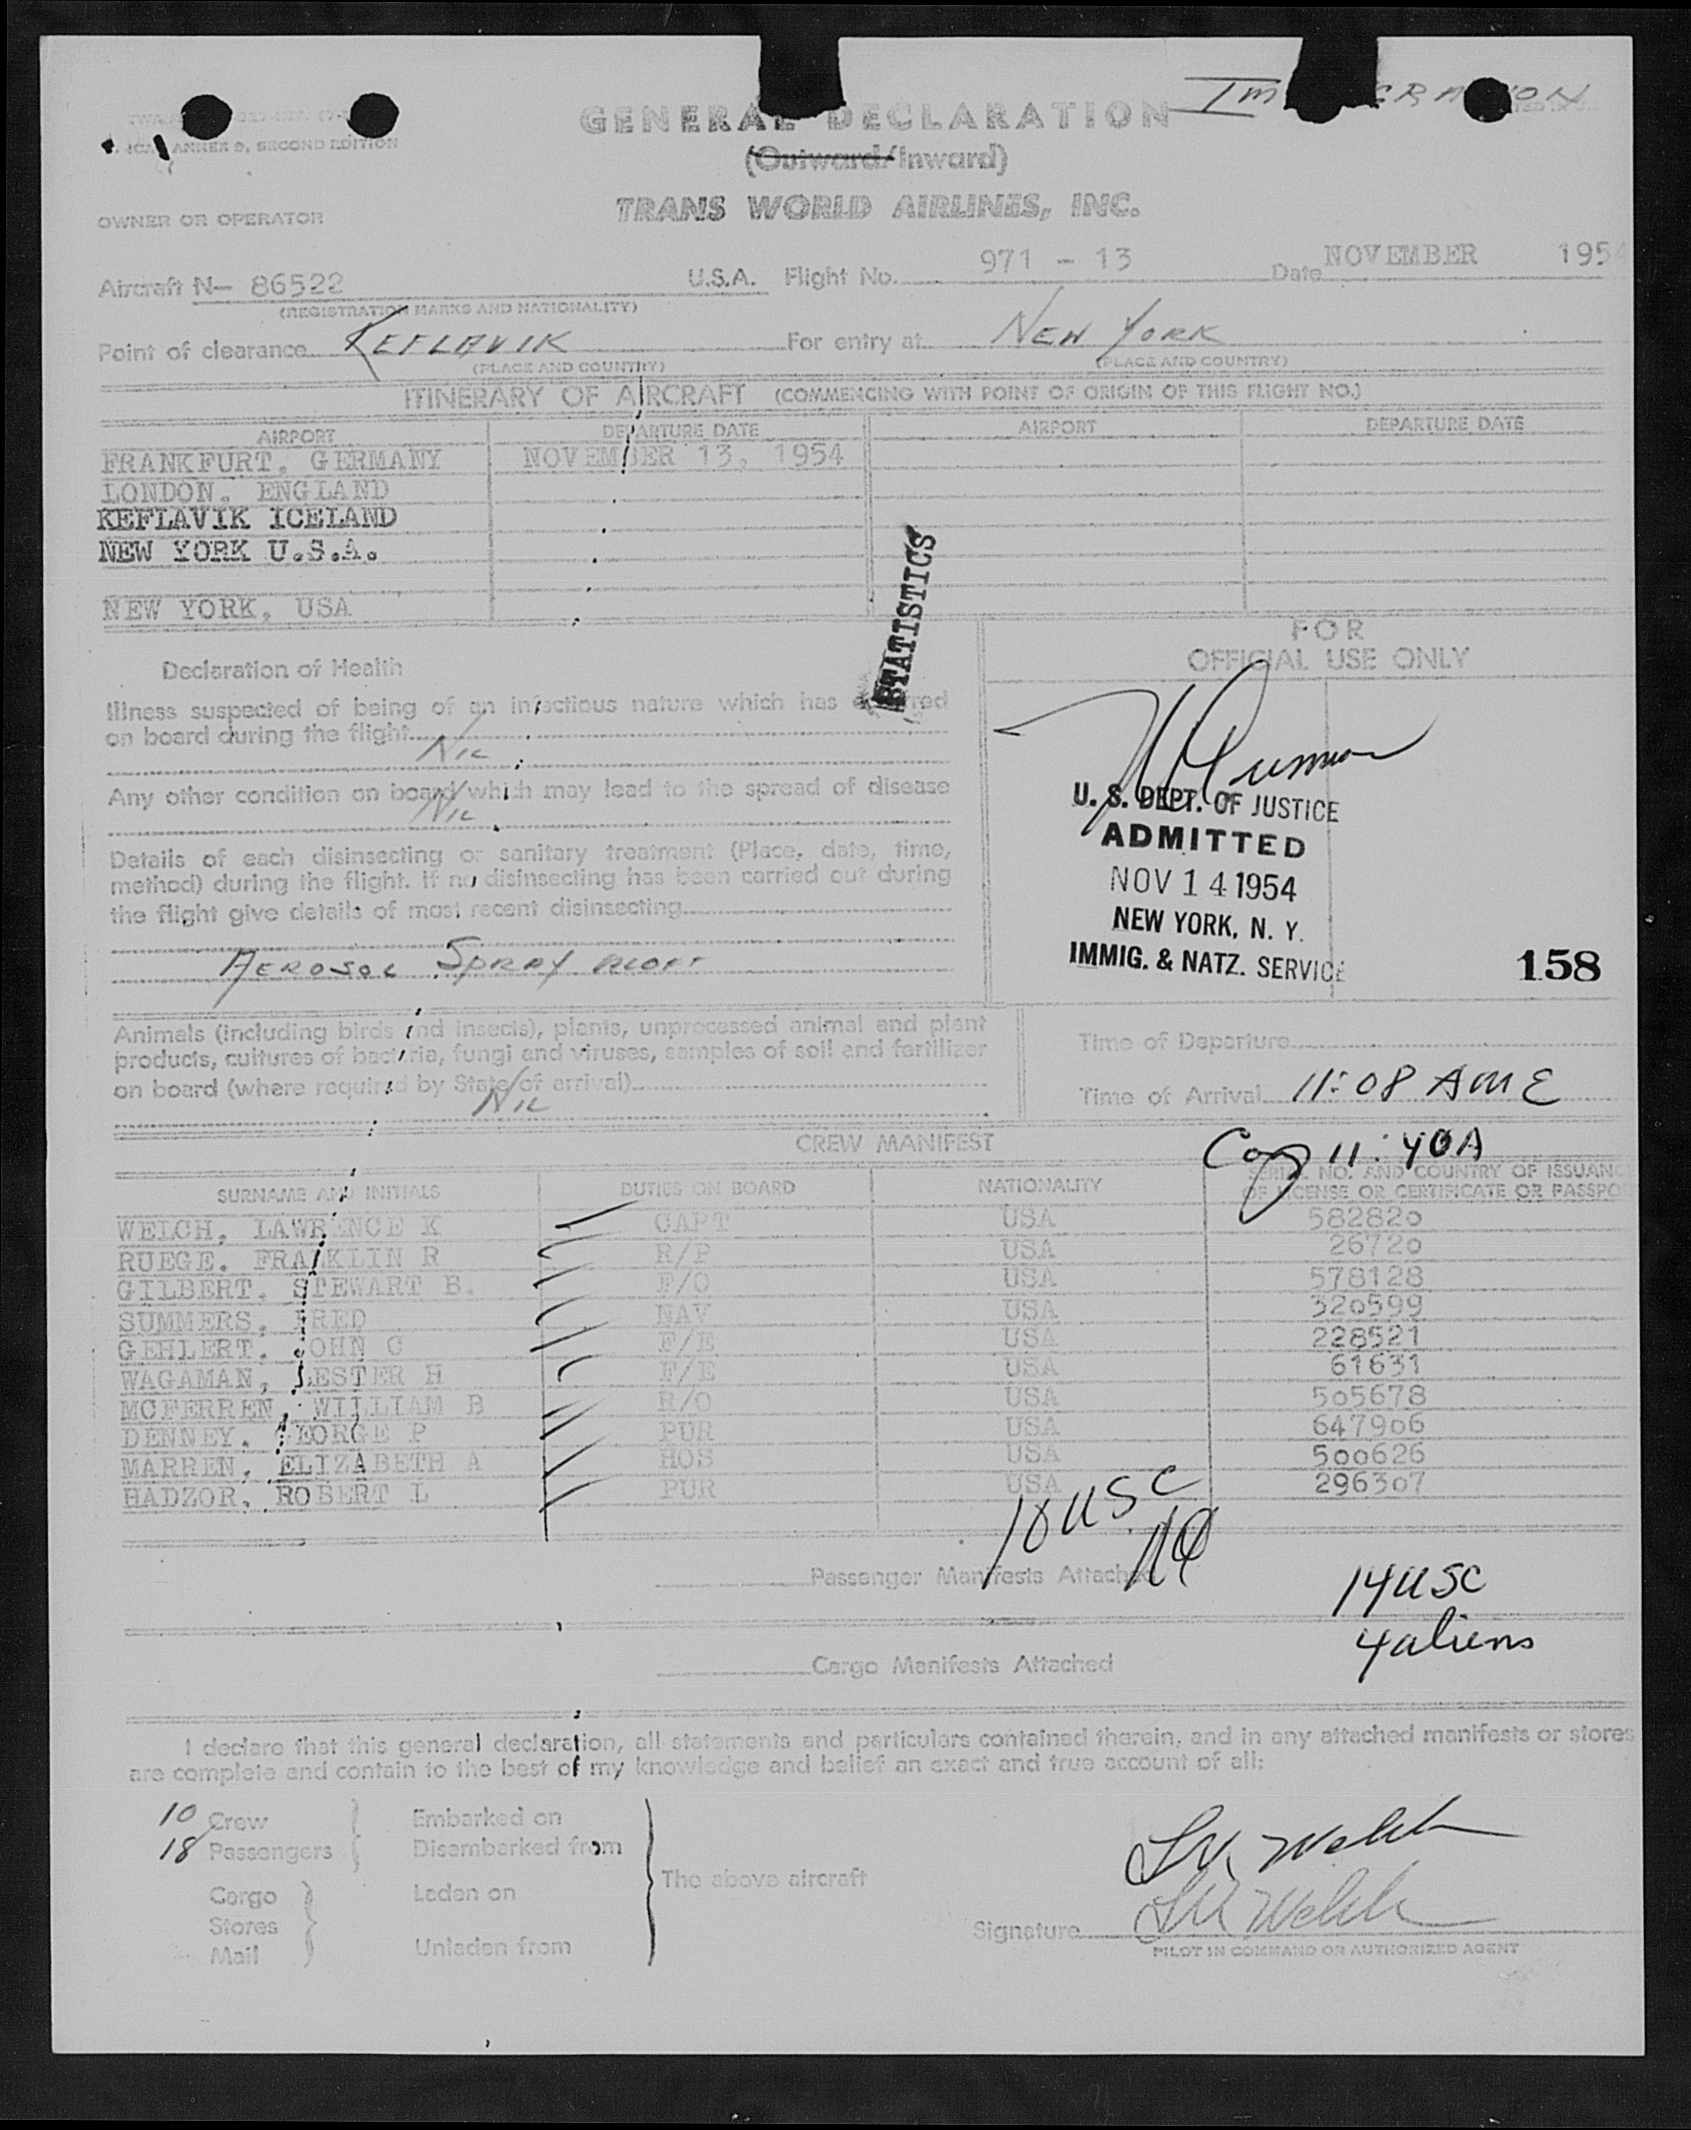 GENERAL DECLARATION
(Outward/Inward)
ANNEX 9, SECOND EDITION
TRANS WORLD AIRLINES, INC.
OWNER OR OPERATOR
Aircraft N- 86522 U.S.A. Flight No. 971 - 13 Date NOVEMBER 195
(REGISTRATION MARKS AND NATIONALITY)
Point of clearance KEFLAVIK For entry at NEW YORK
(PLACE AND COUNTRY) (PLACE AND COUNTRY)
ITINERARY OF AIRCRAFT (COMMENCING WITH POINT OF ORIGIN OF THIS FLIGHT NO.)
AIRPORT DEPARTURE DATE AIRPORT DEPARTURE DATE
FRANKFURT, GERMANY NOVEMBER 13, 1954
LONDON, ENGLAND
KEFLAVIK ICELAND
NEW YORK U.S.A.
NEW YORK, USA
STATISTICS
FOR
OFFICIAL USE ONLY
Declaration of Health
Illness suspected of being of an infectious nature which has
on board during the flight
Nil
Any other condition on board which may lead to the spread of disease
Nil
Details of each disinsecting or sanitary treatment (Place, date, time,
method) during the flight. If no disinsecting has been carried out during
the flight give details of most recent disinsecting
AEROSOL SPRAY ALOFT
U. S. DEPT. OF JUSTICE
ADMITTED
NOV 14 1954
NEW YORK, N. Y.
IMMIG. & NATZ. SERVICE
158
Animals (including birds and insects), plants, unprocessed animal and plant
products, cultures of bacteria, fungi and viruses, samples of soil and fertilizer
on board (where required by State of arrival)
Nil
Time of Departure
Time of Arrival 11:08 AME
CREW MANIFEST
11:40A
SURNAME AND INITIALS DUTIES ON BOARD NATIONALITY SERIAL NO. AND COUNTRY OF ISSUANC
OF LICENSE OR CERTIFICATE OR PASSPO
WELCH, LAWRENCE K CAPT USA 582820
RUEGE, FRANKLIN R R/P USA 26720
GILBERT, STEWART B. F/O USA 578128
SUMMERS, FRED NAV USA 320599
GEHLERT, JOHN C F/E USA 228521
WAGAMAN, LESTER H F/E USA 61631
MCFERREN, WILLIAM B R/O USA 505678
DENNEY, GEORGE P PUR USA 647906
MARREN, ELIZABETH A HOS USA 500626
HADZOR, ROBERT L PUR USA 296307
10 USC
Passenger Manifests Attached
14 USC
4 aliens
Cargo Manifests Attached
I declare that this general declaration, all statements and particulars contained therein, and in any attached manifests or stores
are complete and contain to the best of my knowledge and belief an exact and true account of all:
10 Crew Embarked on
18 Passengers Disembarked from
The above aircraft
Cargo Laden on
Stores
Mail Unladen from
LK Welch
Signature LK Welch
PILOT IN COMMAND OR AUTHORIZED AGENT